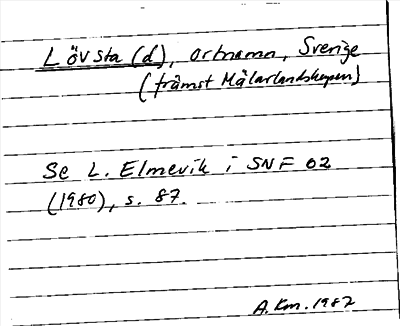 Lövsta (d), ortnamn, Sverige
(främst Mälarlandskapen)
Se L. Elmevik i SNF 62
(1980), s. 87.
A. Km. 1987